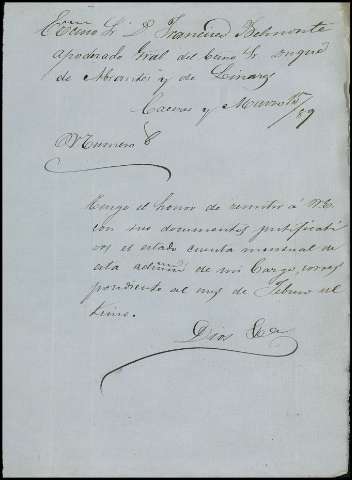 Excmo Sr D Francisco Belmonte
apoderado Gral del Excmo Sr Duque
de Abrantes y de Linares
Caceres y Marzo 15/89
Numero 8
Tengo el honor de remitir á VE
con sus documentos justificati
vos el estado cuenta mensual de
esta admon de mi Cargo, corres
pondiente al mes de Febrero ul
timo.
Dios &a